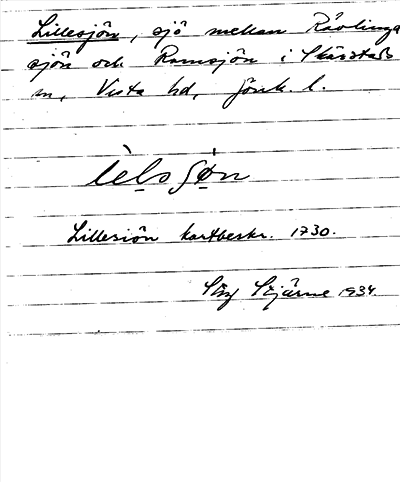 Lillesjön, sjö mellan Rävlinga
sjön och Ramsjön i Skärstads
sn, Vista hd, Jönk. l.
lelssjøn
Lillesiön kartbeskr. 1730.
Stig Stjärne 1934.